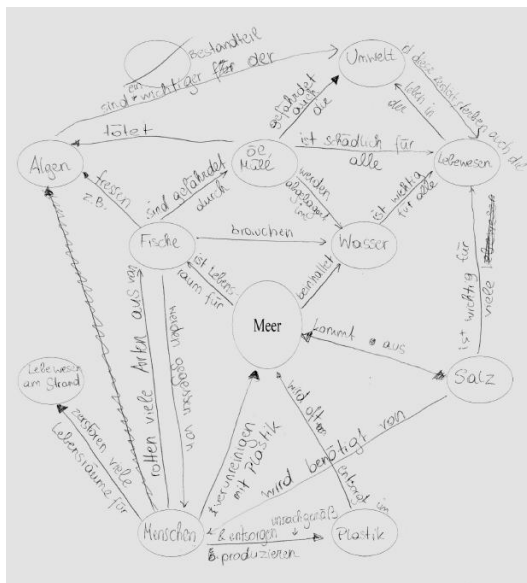 Bestandteil
sind ein wichtiger für der
Umwelt
stirbt diese sterben auch die
gefährdet auch die
leben in der
tötet
Algen
Öl
Müll
ist schädlich für alle
Lebewesen
fressen z.B.
sind gefährdet durch
werden abgelagert im
ist wichtig für alle
Fische
brauchen
Wasser
ist Lebensraum für
beinhaltet
ist wichtig für viele
Meer
kommt aus
Salz
Lebewesen am Strand
zerstören viele Lebensräume für
rotten viele Arten aus von
werden gegessen von
verunreinigen mit Plastik
wird oft im
entsorgt im
wird benötigt von
Menschen
& entsorgen unsachgemäß
produzieren
Plastik